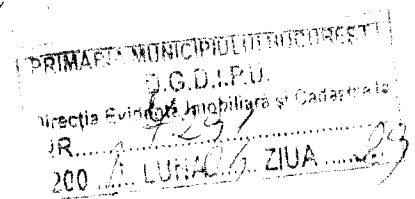 PRIMARIA MUNICIPIULUI BUCUREȘTI
D.G.D.I.P.U.
Direcția Evidență Imobiliară și Cadastrală
NR.......
200 ...... LUNA 06 ZIUA ......